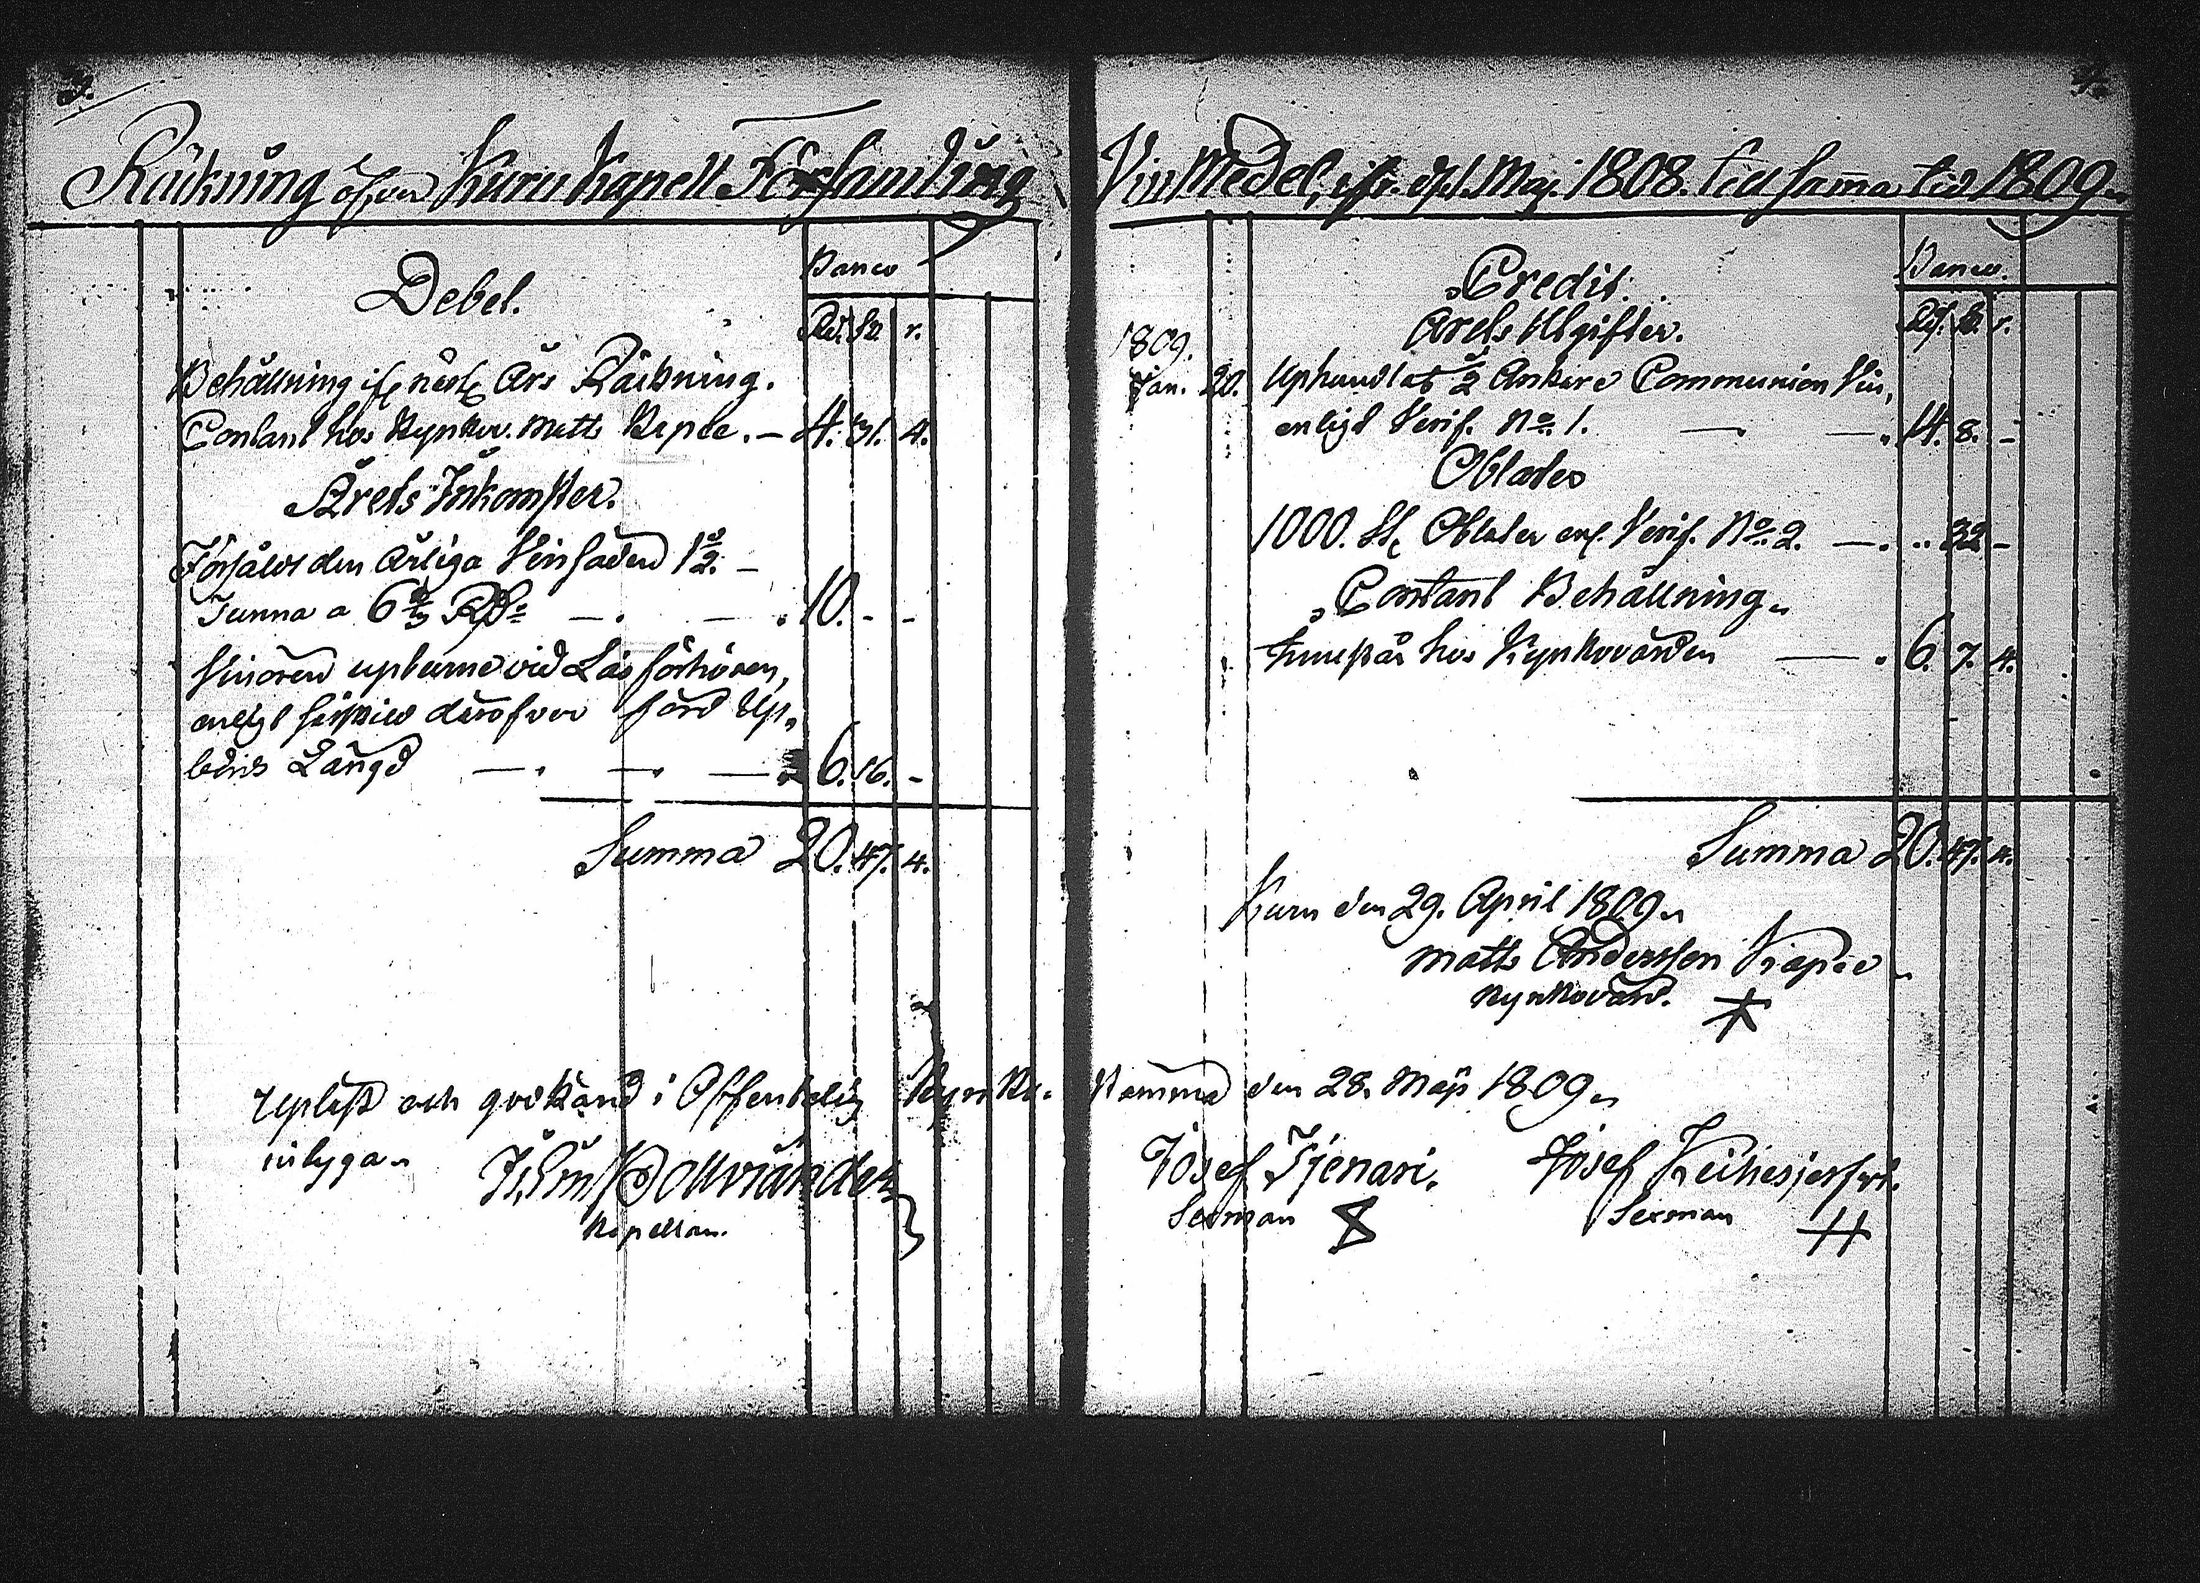 3.
Räkning öfver Kuru Kapell Församlings
Debet.
Banco
Rd. sk. r.
Behållning ifr. näst. Års Räkning.
Contant hos Kyrkov. Matts Kapee. — 4. 31. 4.
Årets Inkomster.
Försåldt den Årliga Vinsäden 1 1/2. —
Tunna a 6 2/3 Rd. — — 10. - -
Vinören upburne vid Läsförhören,
enligt särskild deröfver förd Up-
börds Längd — — — 6. 16. -
Summa 20. 47. 4.
Upläst och godkänd i Offentelig Kyrko-
intygar
Kapellan.
4.
Vin Medel, ifr. d. 1. Maj. 1808. till samma tid 1809.
Credit.
Banco.
Årets Utgifter.
Rd. sk. r.
1809.
Jan. 20. Uphandlat 1/2 Ankare Communion Vin,
enligt Verif. No. 1. — — 14. 8. -
Oblater
1000. St. Oblater enl. Verif. No. 2. — .. 32 -
Contant Behållning
innestår hos Kyrkovärden — 6. 7. 4.
Summa 20. 47. 4.
Kuru den 29. April 1809.
Matts Andersson Kapee
Kyrkovärd.
Stämma den 28. Maji 1809.
Josef Tjenari. Josef
Sexman Sexman